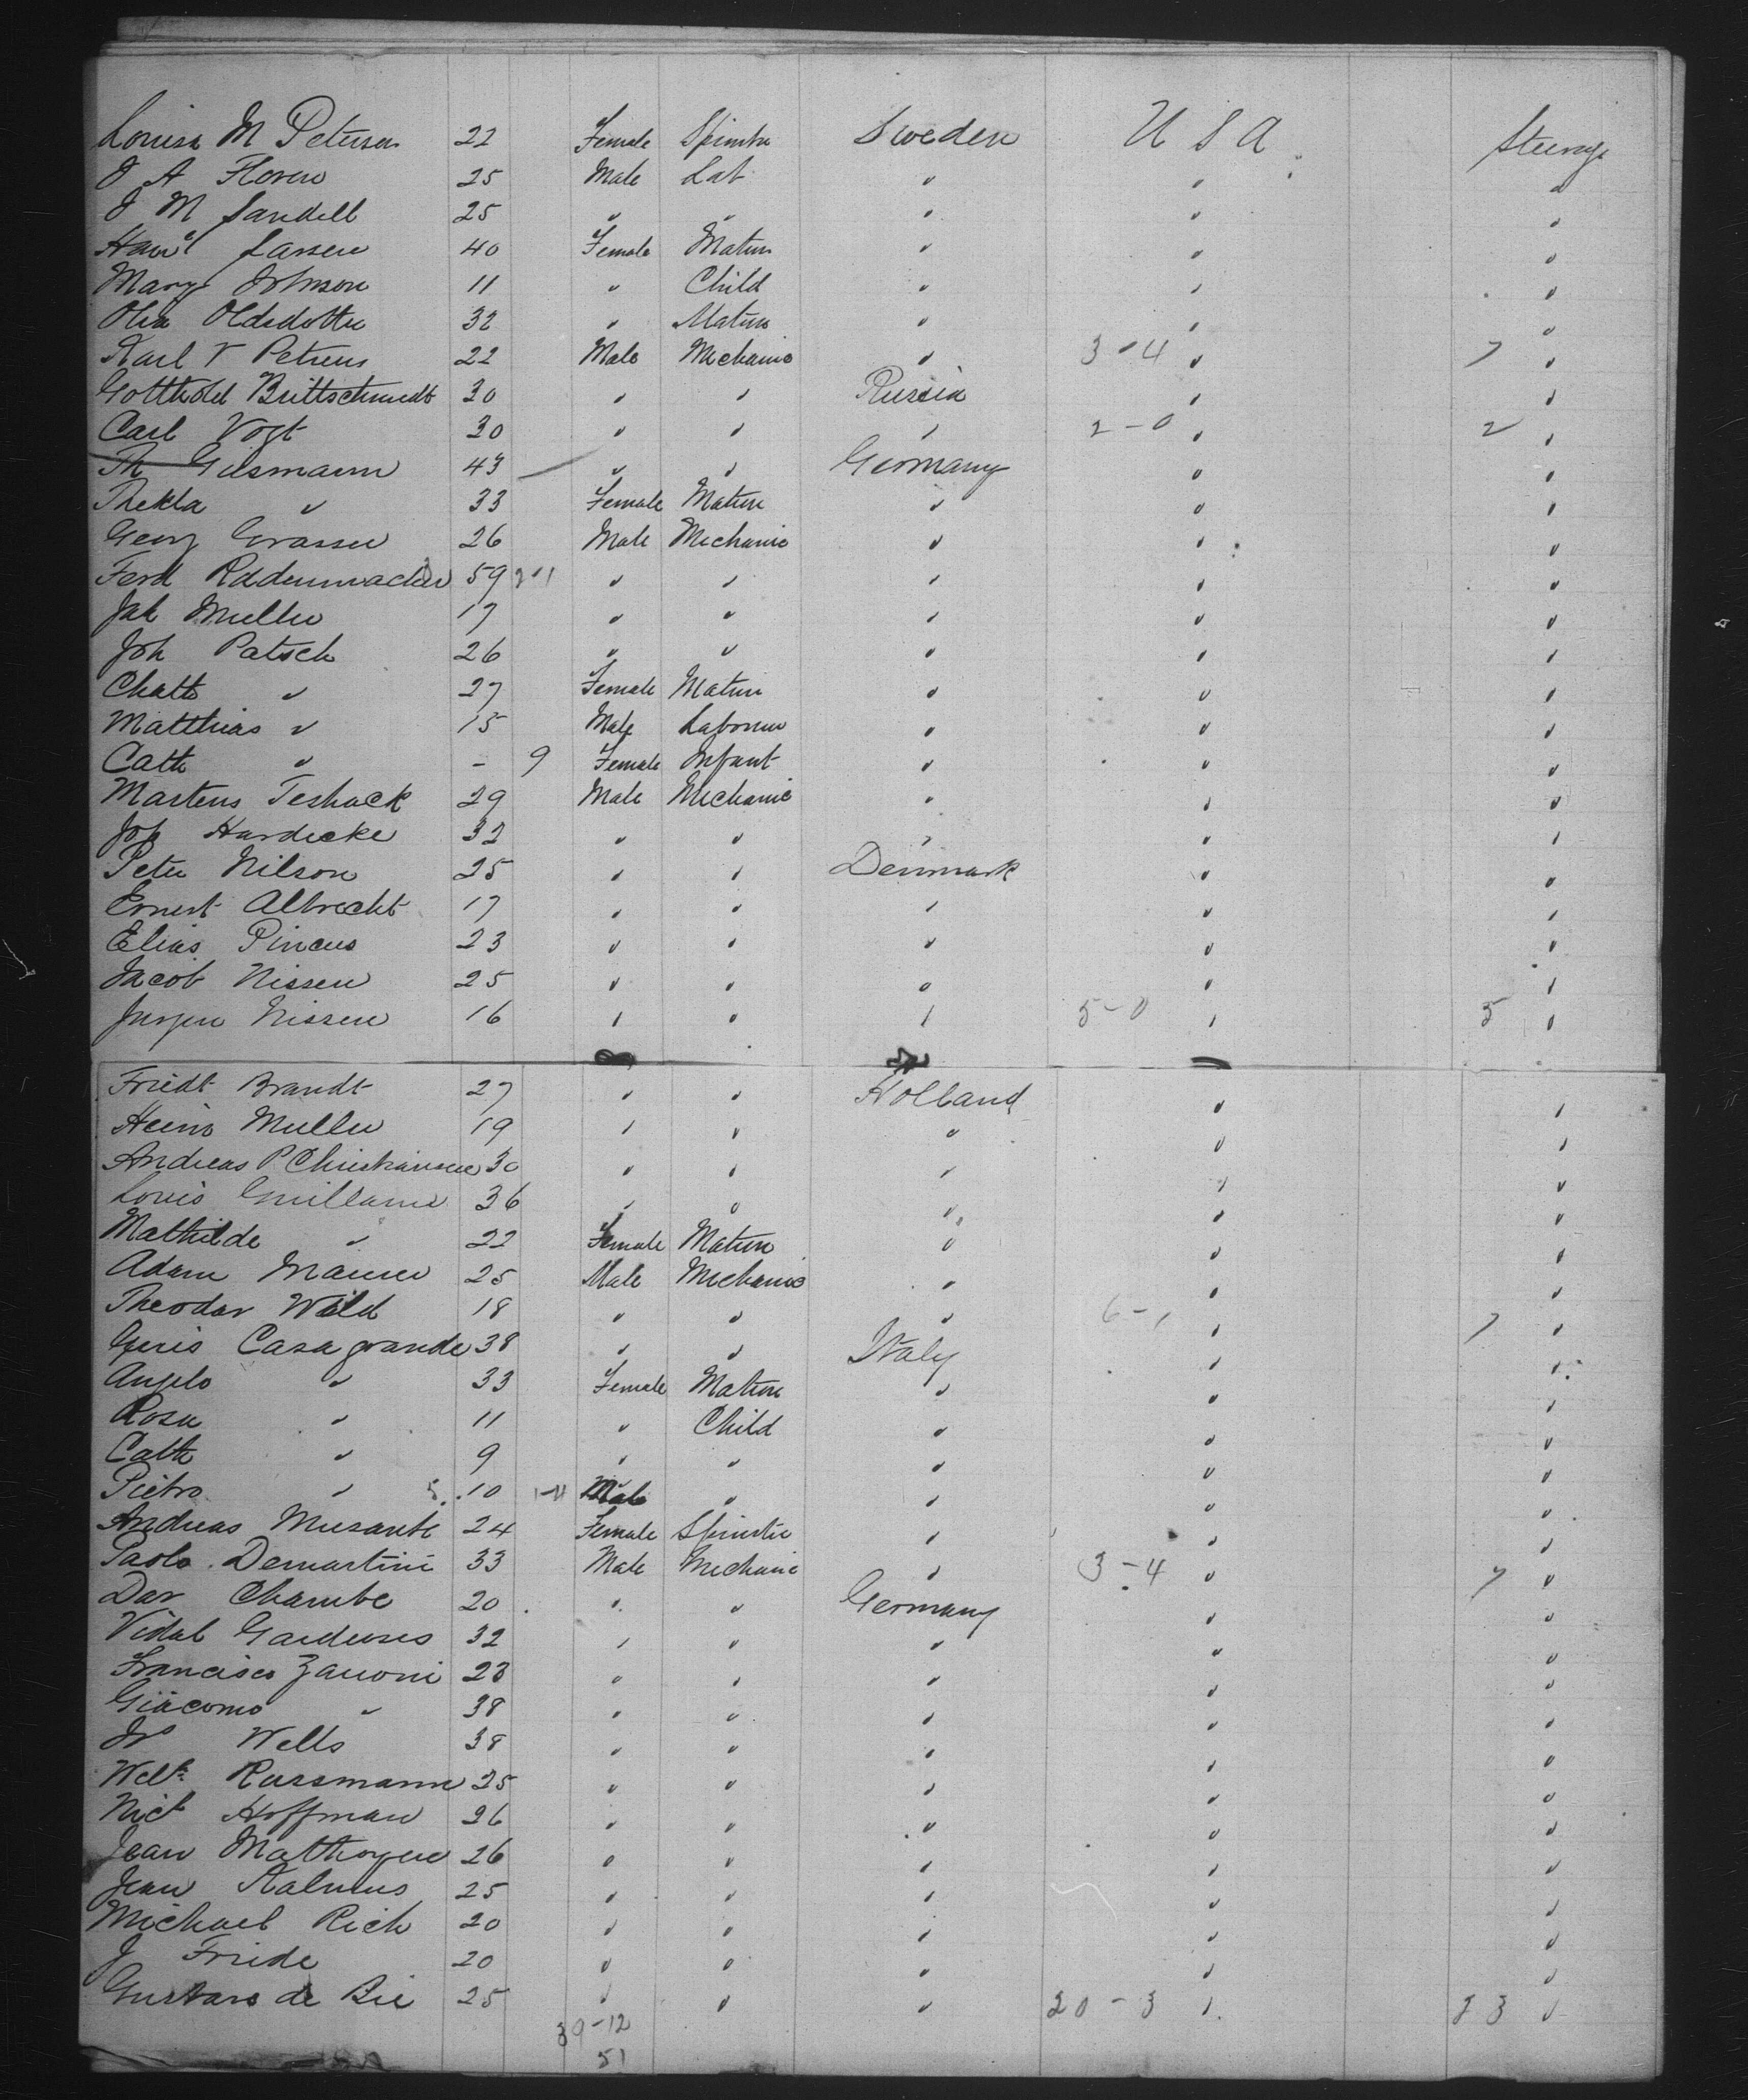 Louisa M Peterson 22 Female Spinster Sweden U S A Steerage
J A Floren 25 Male Lab " " "
J M Sandell 25 " " " " "
Larsen 40 Female Matron " " "
Mary Johnson 11 " Child " " "
Olin Oldsdotter 32 " Matron " " "
Karl V Petreus 22 Male Mechanic " 3-4 " 7 "
Gotthold Brittschmidt 30 " " Russia " "
Carl Vogt 30 " " " 2-0 " 2 "
Th Giesmann 43 " " Germany " "
Thekla " 33 Female Matron " " "
Georg Grasser 26 Male Mechanic " " "
Ferd Rademacher 59 2-1 " " " " "
Jak Muller 17 " " " " "
Joh Patsch 26 " " " " "
Chatt " 27 Female Matron " " "
Matthias " 15 Male Labourer " " "
Cath " - 9 Female Infant " " "
Martens Teshack 29 Male Mechanic " " "
Joh Hardecke 32 " " " " "
Peter Nilson 25 " " Denmark " "
Ernest Albrecht 17 " " " " "
Elias Pincus 23 " " " " "
Jacob Nissen 25 " " " " "
Jurgen Nissen 16 " " " 5-0 " 5 "
Friedt Brandt 27 " " Holland " "
Heinr Muller 19 " " " " "
Andreas P Christiansen 30 " " " " "
Louis Guillaume 36 " " " " "
Mathilde " 22 Female Matron " " "
Adam Maurer 25 Male Mechanic " " "
Theodor Wild 18 " " " 6-1 " 7 "
Casagrande 38 " " Italy " "
Angelo " 33 Female Matron " " "
Rosa " 11 " Child " " "
Cath " 9 " " " " "
Pietro " 5. 10 1-11 Male " " " "
Andreas Musante 24 Female Spinster " " "
Paolo Demartini 33 Male Mechanic " 3-4 " 7 "
Dav Chambe 20 " " Germany " "
Vidal 32 " " " " "
Francisco Zanoni 28 " " " " "
Giacomo " 38 " " " " "
Jno Wells 38 " " " " "
Welt Rassmann 25 " " " " "
Nick Hoffman 26 " " " " "
Jean Mattheyer 26 " " " " "
Jean Kalmus 25 " " " " "
Michael Rich 20 " " " " "
J Friede 20 " " " " "
Gustavo de Bie 25 " " " 20-3 " 23 "
39-12
51